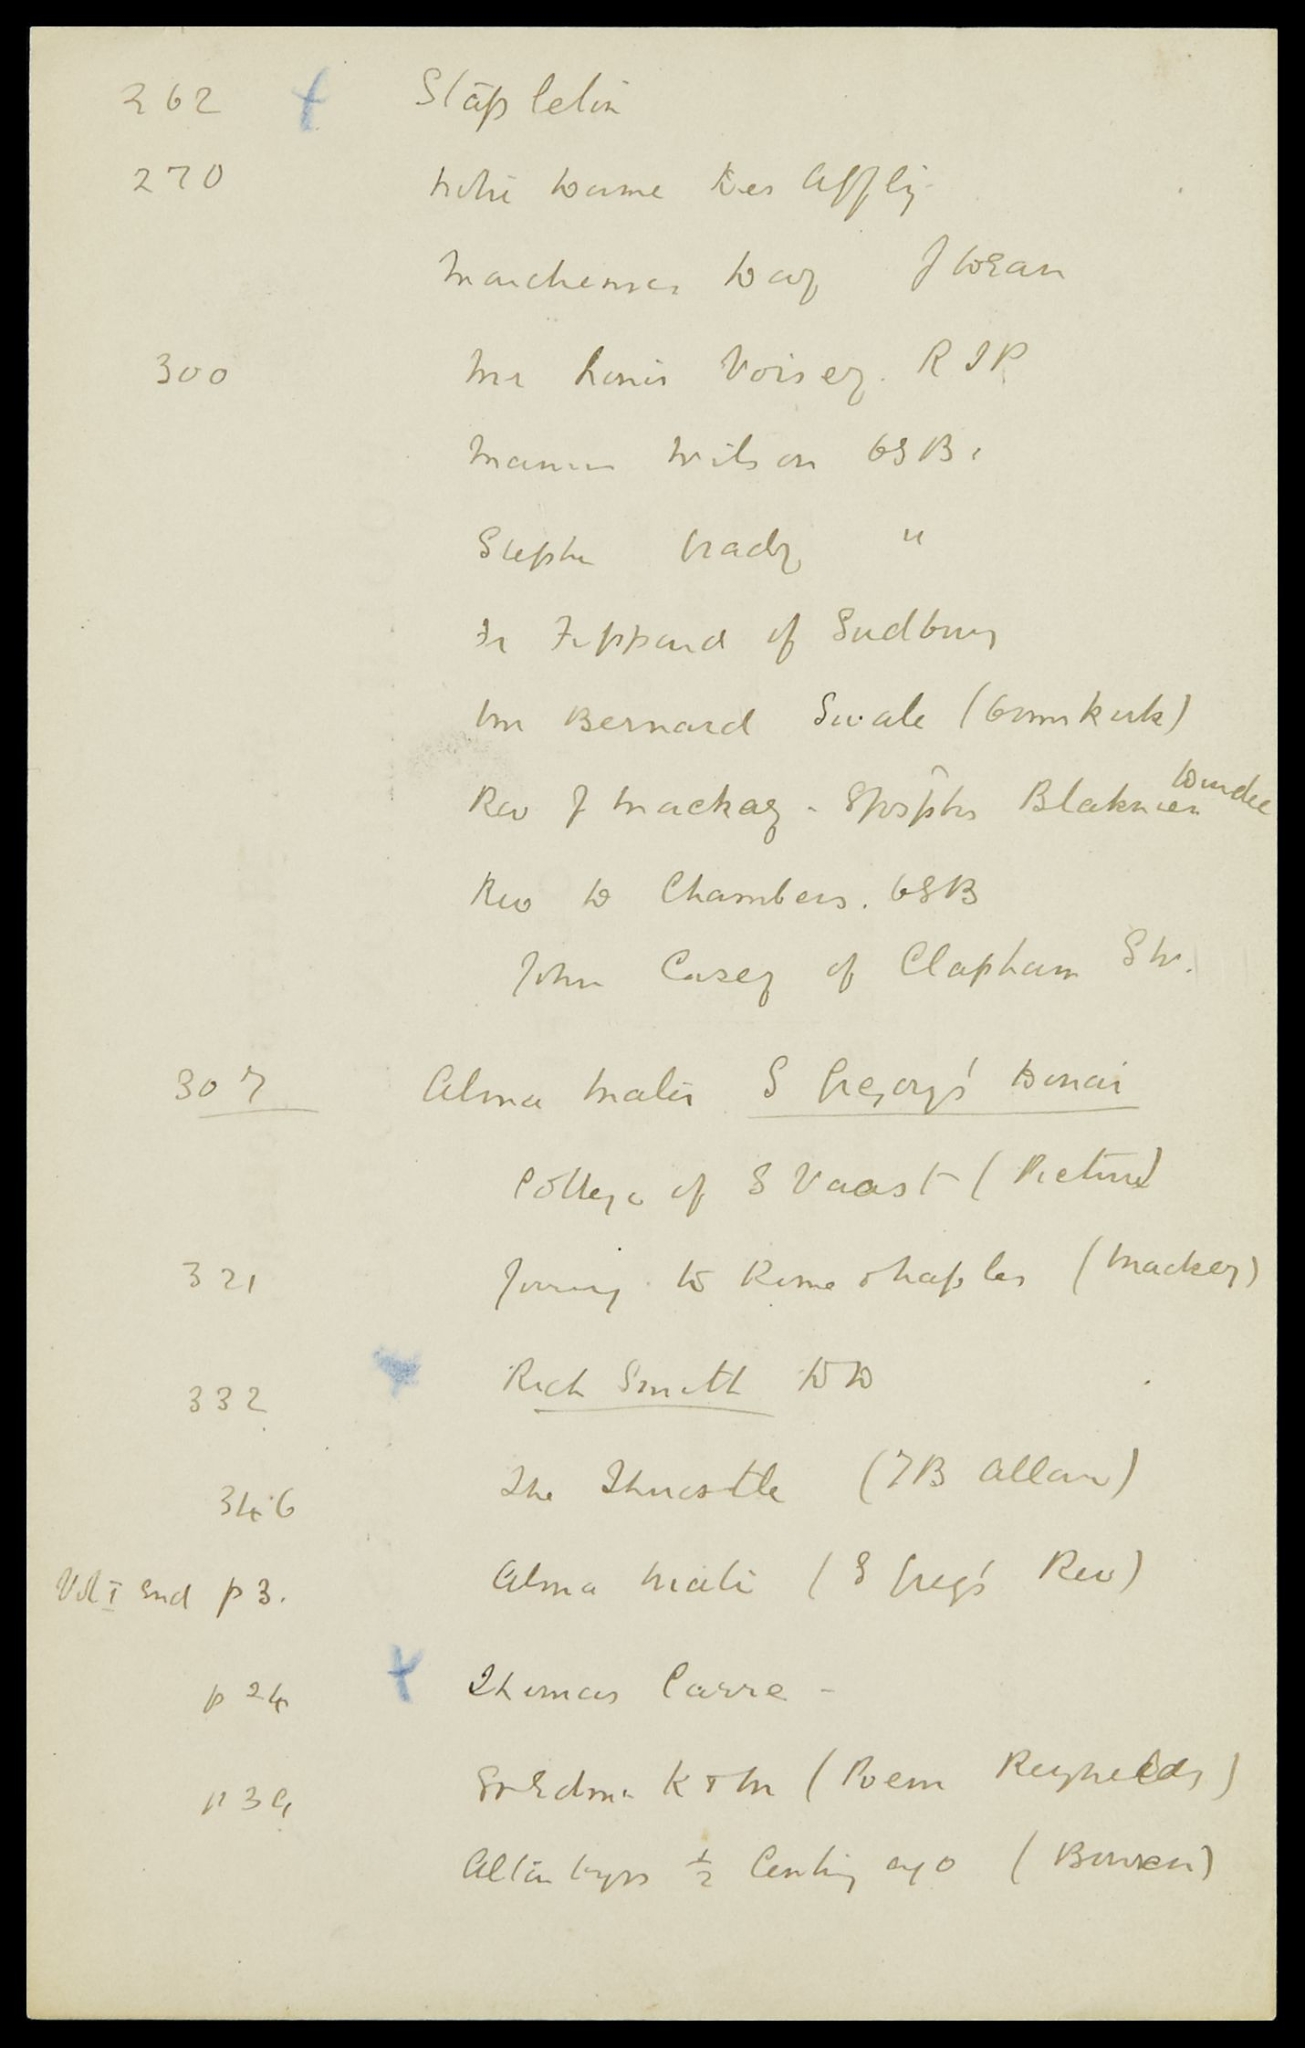 262 Stapleton
270 Notre Dame des Afflig.
J Doran
300 Mr Louis Voisey. R I P
Wilson OSB.
Stephen Brady "
Fr Fippard of Sudbury
Mr Bernard Swale (Ormskirk)
Rev J Mackay - Blakmen Dundee
Rev D Chambers. OSB
John Casey of Clapham SW.
307 Alma Mater S Gregory's Douai
College of S Vaast (Picture)
321 Journey to Rome & Naples (Mackey)
332 Rich Smith DD
346 The Throstle (JB Allan)
Vol I End p 3. Alma Mater (S Greg's Rev)
p 24 Thomas Carre -
p 39 St Edm. K & M (Poem Reynolds)
½ Century ago (Bowen)